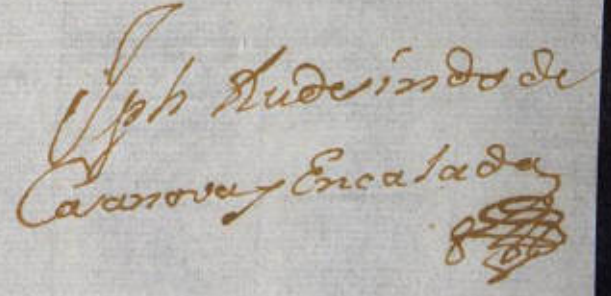 Jph Rudesindo de
Casanova y Encalada